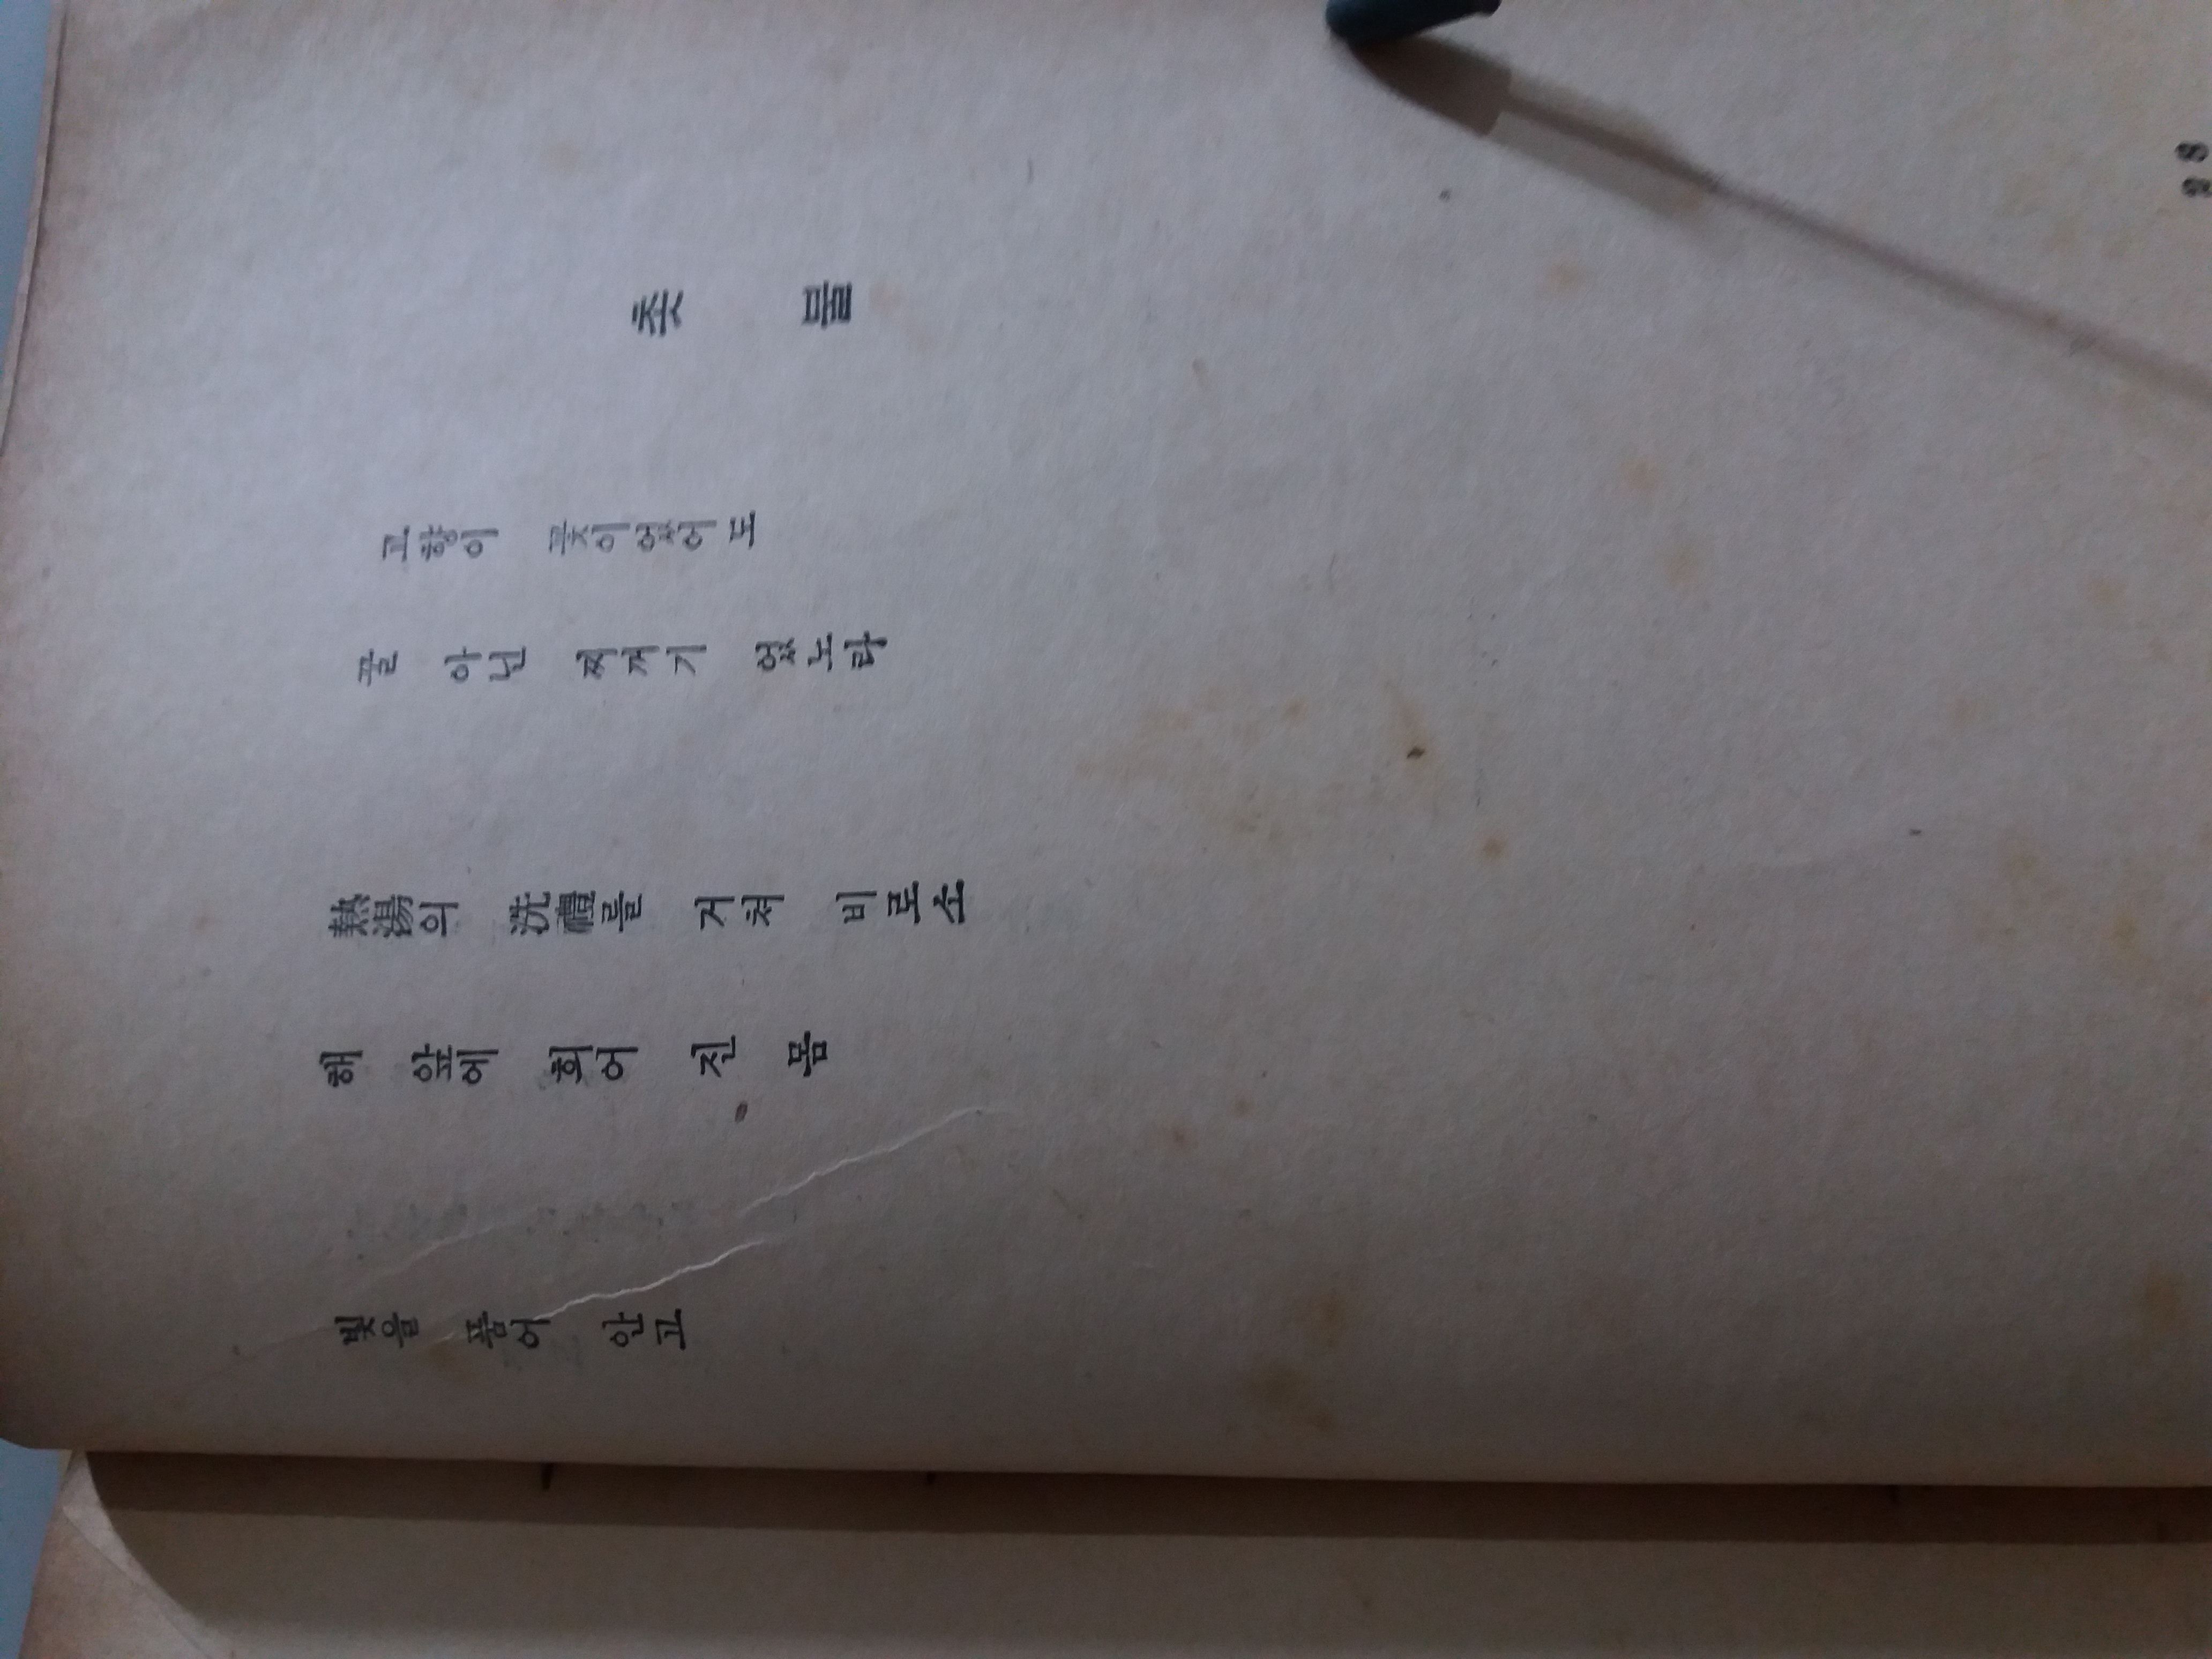 촛불
고향이 꽃이었어도
꿀 아닌 찌꺼기 였노라
熱湯의 洗禮를 거쳐 비로소
해 앞에 희어 진 몸
빛을 품어 안고